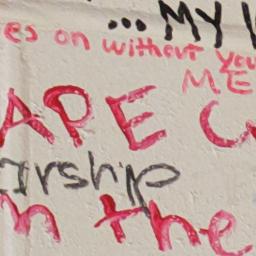 ...MY
es on without you
ME
APE C
arship
n the